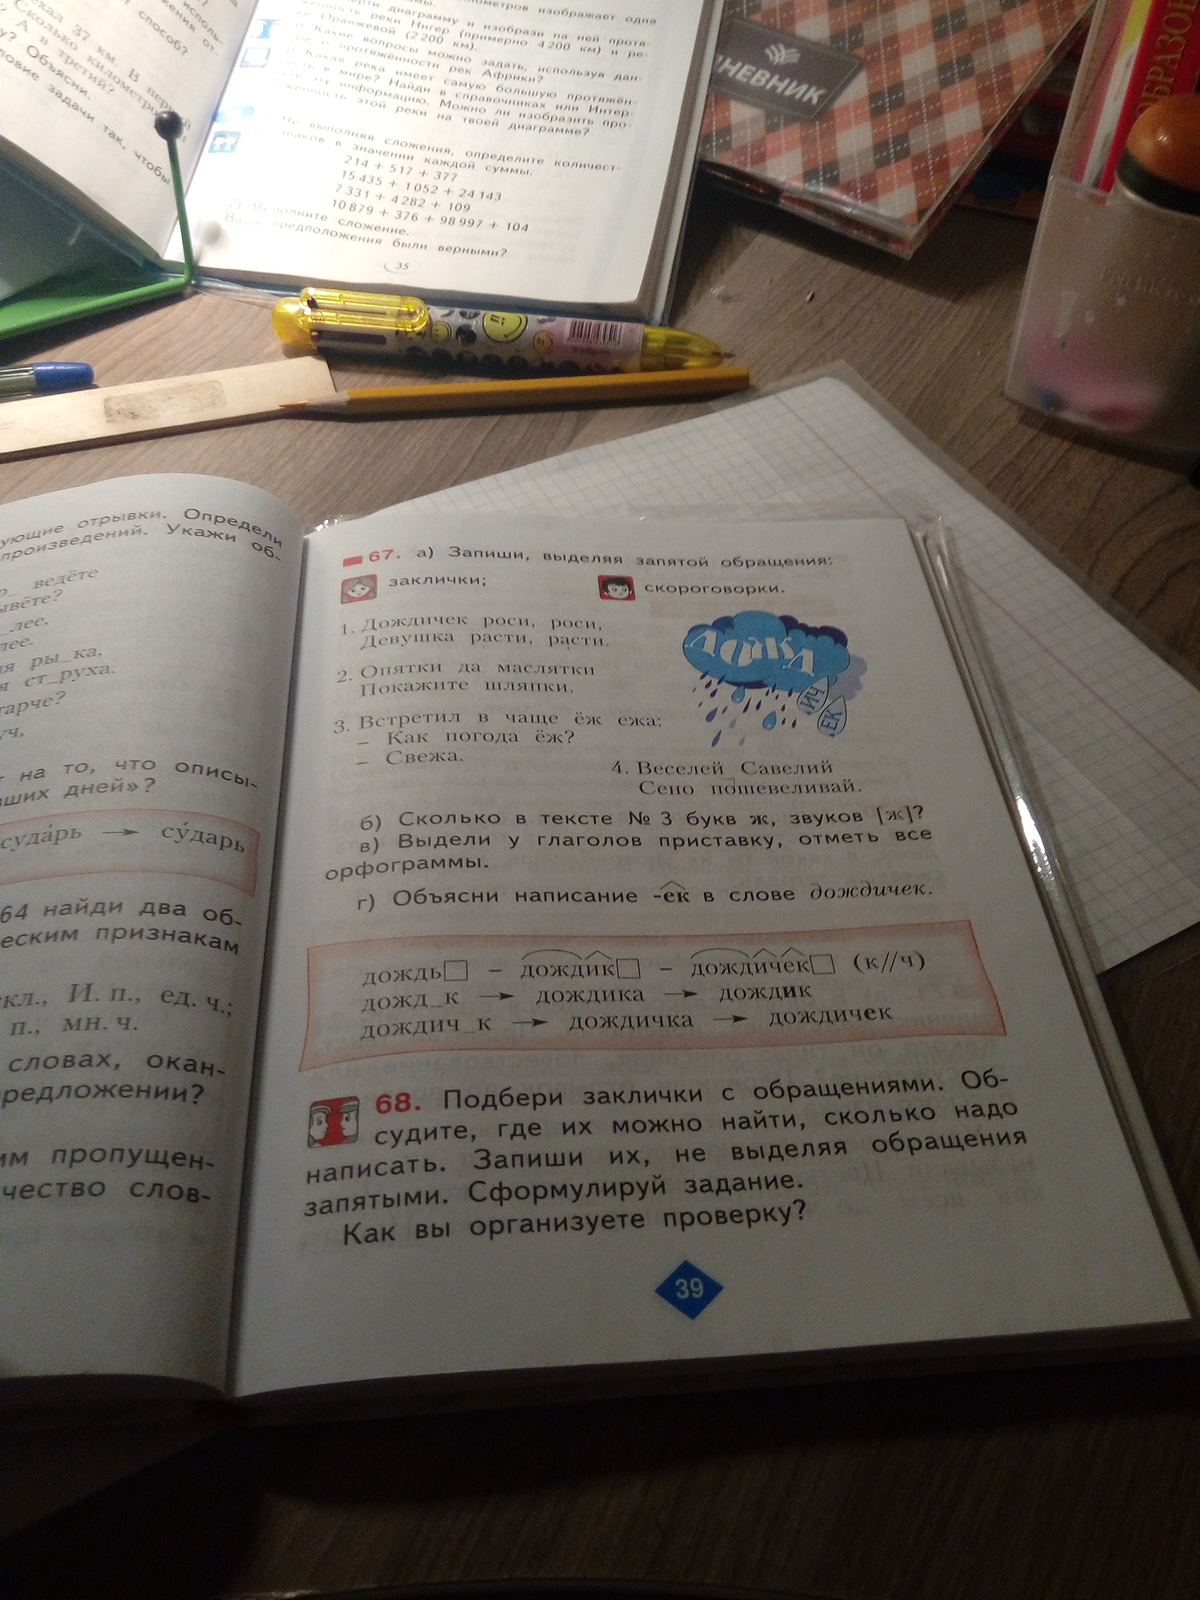 километров изображает одна
диаграмму и изобрази на ней протя-
женность реки Нигер (примерно 4 200 км) и ре-
Оранжевой (2 200 км).
Какие вопросы можно задать, используя дан-
протяжённости рек Африки?
Какая река имеет самую большую протяжён-
в мире? Найди в справочниках или Интер-
информацию. Можно ли изобразить про-
этой реки на твоей диаграмме?
Не выполняя сложения, определите количест-
знаков в значении каждой суммы.
214 + 517 + 377
15 435 + 1 052 + 24 143
7 331 + 4 282 + 109
10 879 + 376 + 98 997 + 104
2) Выполните сложение.
предположения были верными?
35
37 км. В
Сколько километров
А в третий?
Объясни.
задачи так, чтобы
способ?
ДНЕВНИК
ующие отрывки. Определи
произведений. Укажи об-
ведёте
лее,
лее.
ры_ка,
ст_руха.
тарче?
на то, что описы-
вших дней»?
сударь → су́дарь
64 найди два об-
еским признакам
кл., И. п., ед. ч.;
п., мн. ч.
словах, окан-
редложении?
им пропущен-
чество слов-
67. а) Запиши, выделяя запятой обращения:
заклички; скороговорки.
1. Дождичек роси, роси,
Девушка расти, расти.
2. Опятки да маслятки
Покажите шляпки.
3. Встретил в чаще ёж ежа:
– Как погода ёж?
– Свежа.
ДОЖД
ИЧ
ЕК
4. Веселей Савелий
Сено пошевеливай.
б) Сколько в тексте № 3 букв ж, звуков [ж]?
в) Выдели у глаголов приставку, отметь все
орфограммы.
г) Объясни написание -ек в слове дождичек.
дождь – дождик – дождичек (к//ч)
дожд_к → дождика → дождик
дождич_к → дождичка → дождичек
68. Подбери заклички с обращениями. Об-
судите, где их можно найти, сколько надо
написать. Запиши их, не выделяя обращения
запятыми. Сформулируй задание.
Как вы организуете проверку?
39